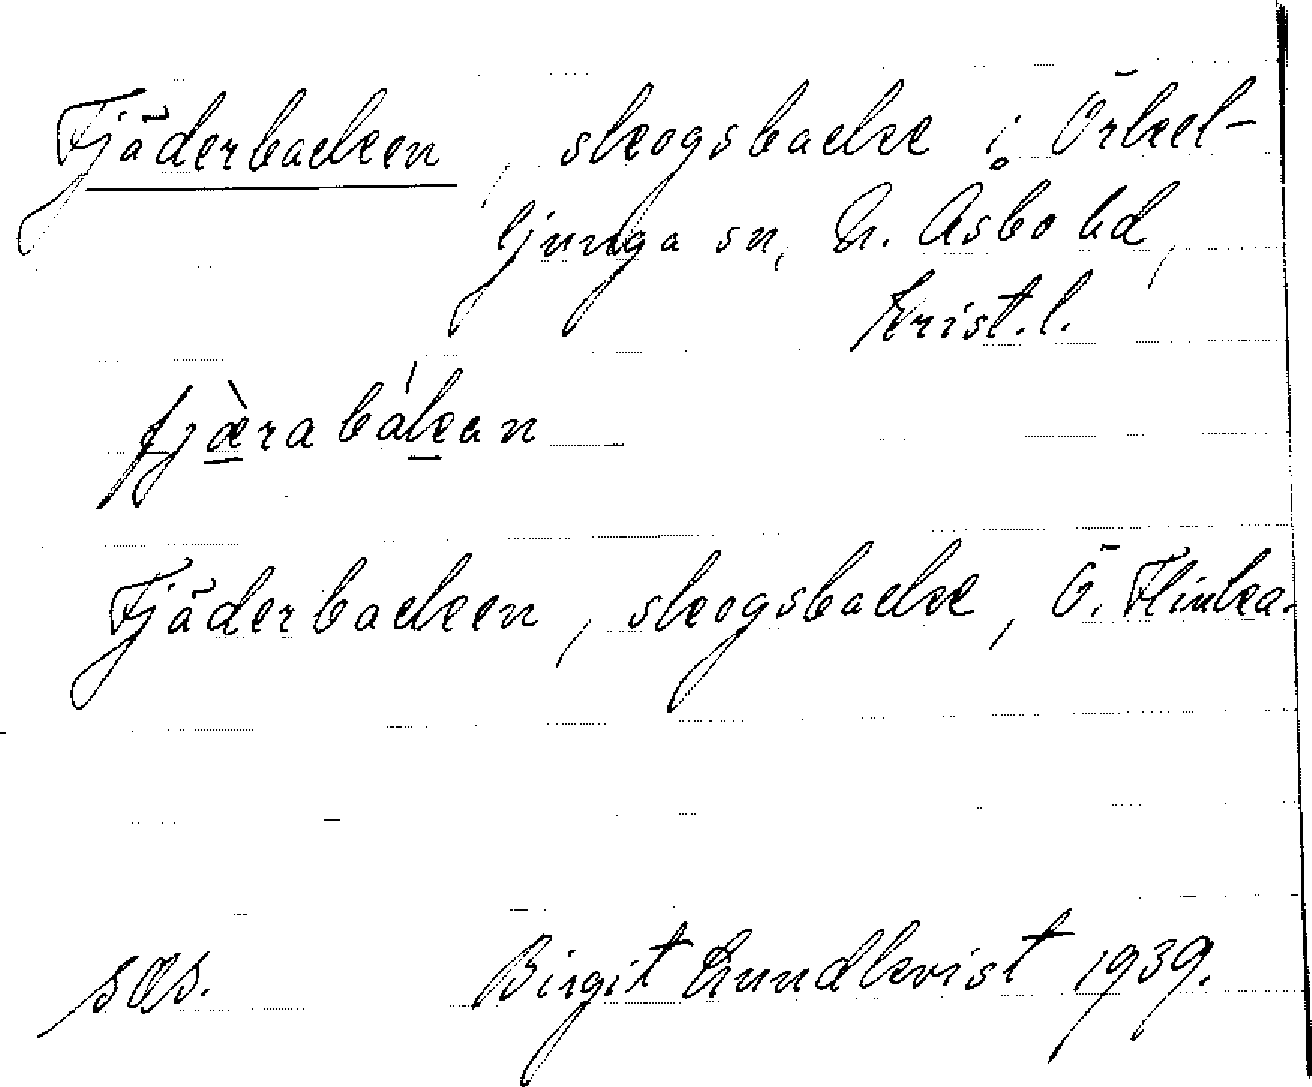 Fjäderbacken, skogsbacke i Örkel-
ljunga sn, N. Åsbo hd,
Krist.l.
fjæ̀rabákan
Fjäderbacken, skogsbacke, Ö. Flinka.
søs. Birgit Lundkvist 1939.